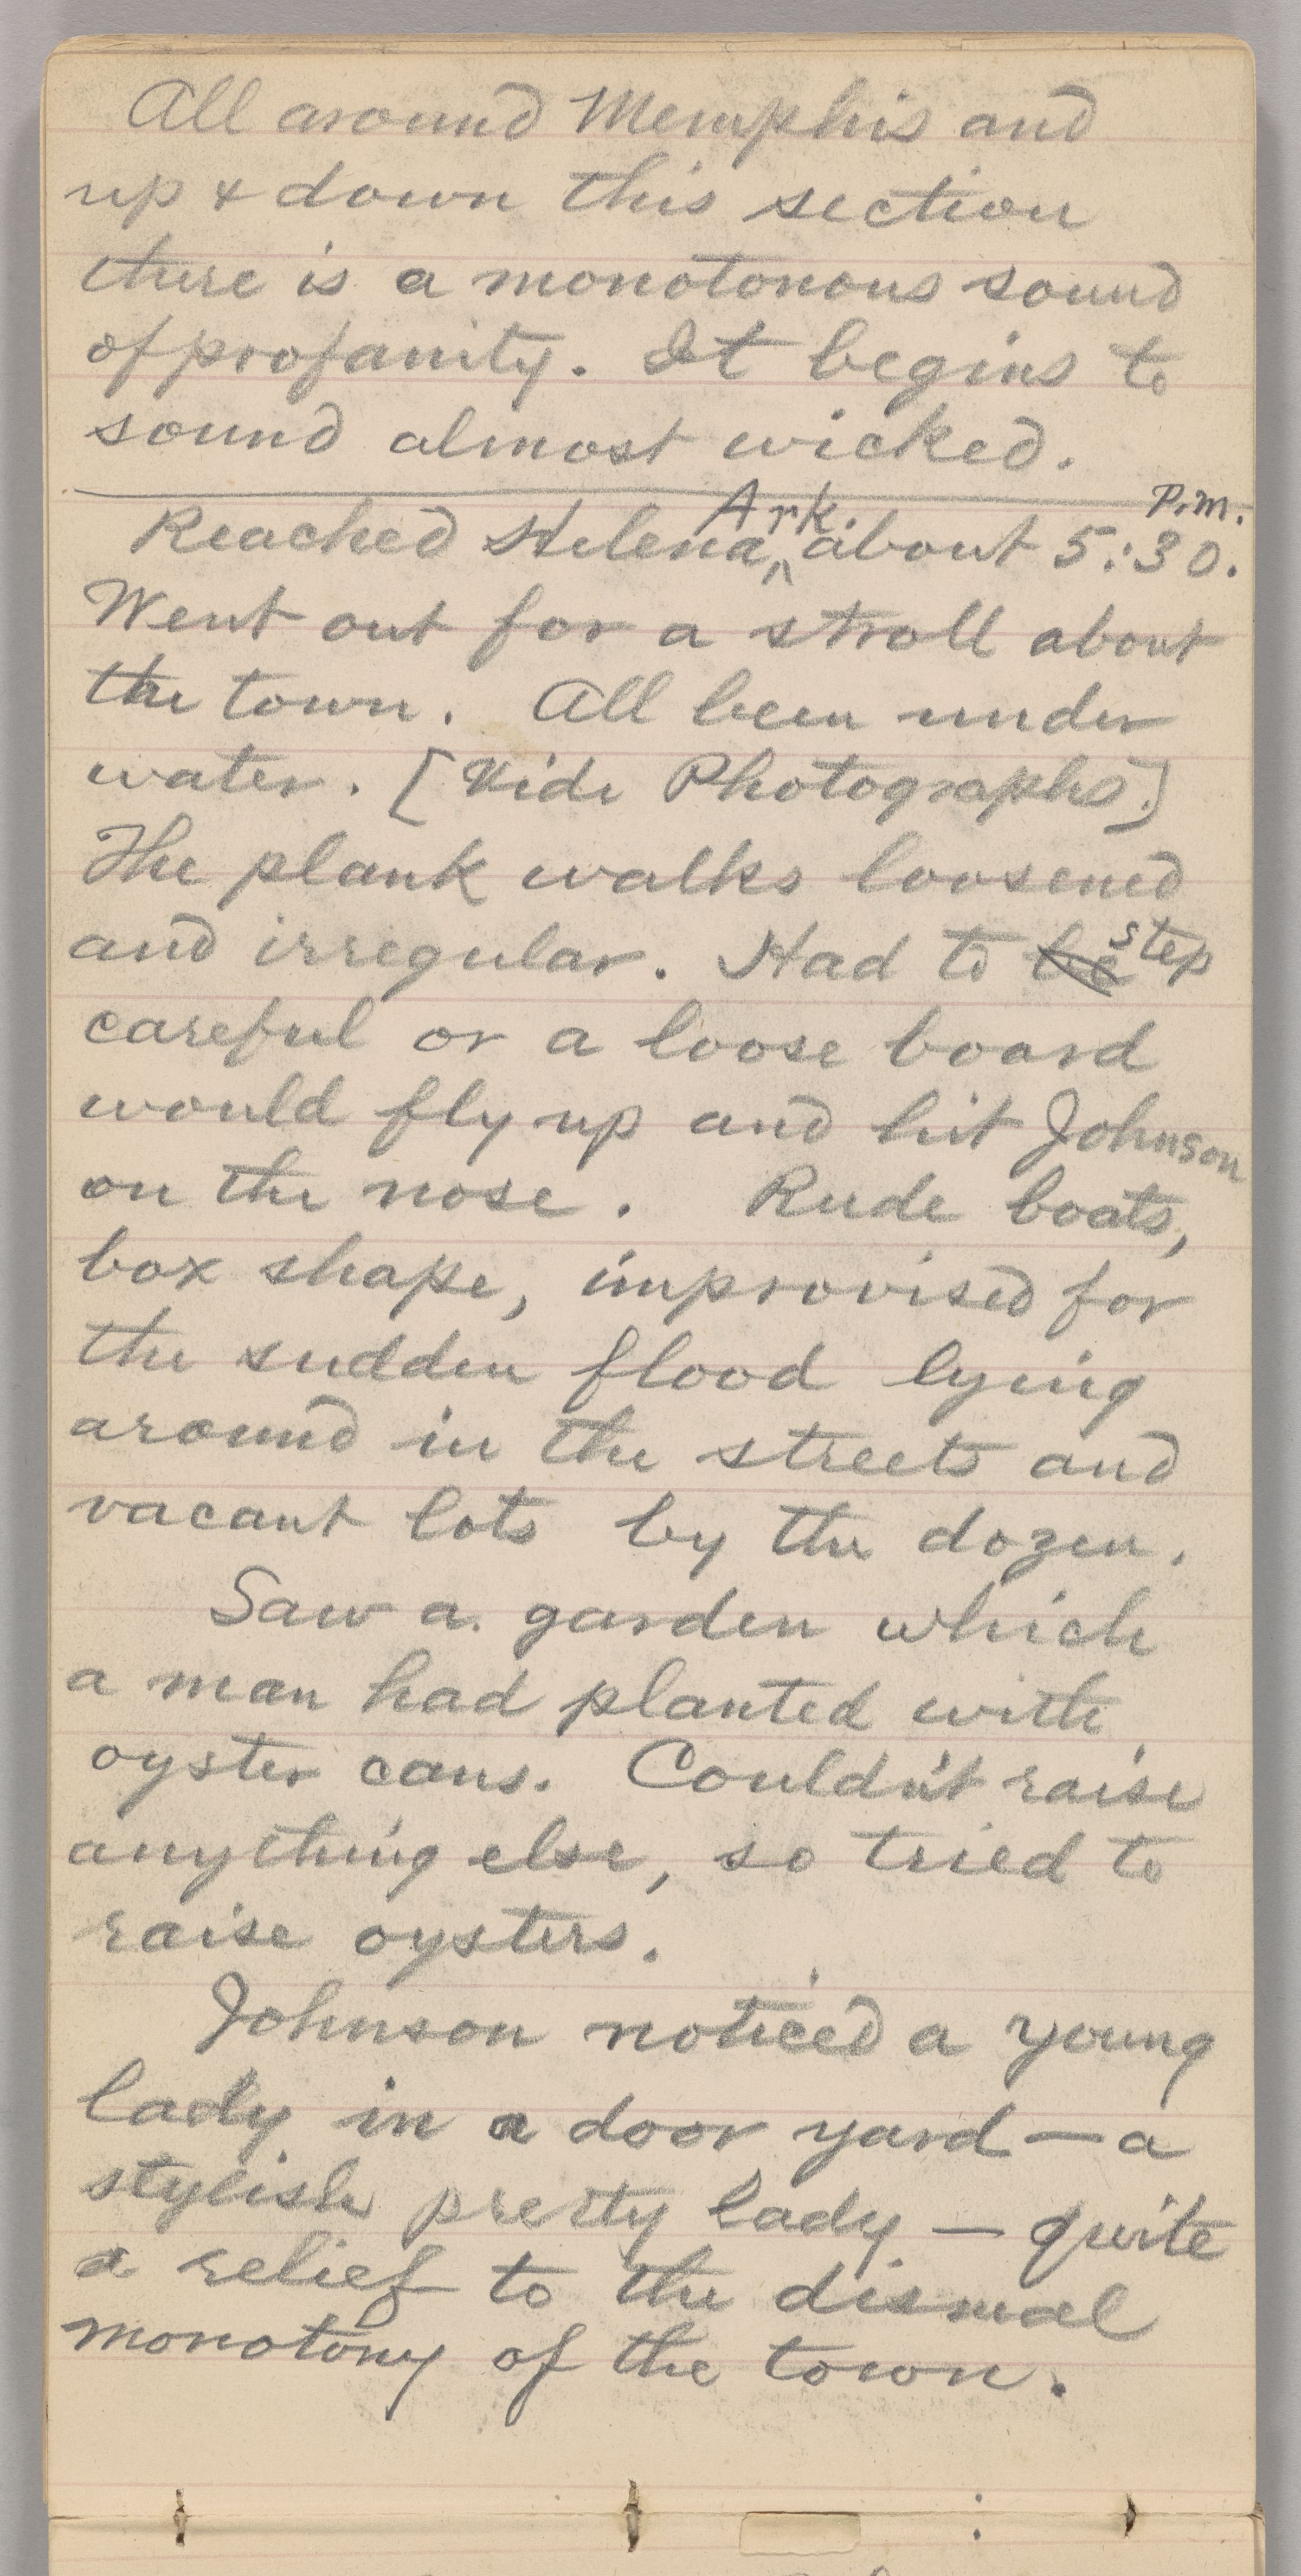 All around Memphis and
up & down this section
there is a monotonous sound
of profanity. It begins to
sound almost wicked.
Reached Helena, Ark. about 5:30. P.M.
Went out for a stroll about
the town. All been under
water. [Vide Photographs.]
The plank walks loosened
and irregular. Had to be step
careful or a loose board
would fly up and hit Johnson
on the nose. Rude boats,
box shape, improvised for
the sudden flood lying
around in the streets and
vacant lots by the dozen.
Saw a garden which
a man had planted with
oyster cans. Couldn't raise
anything else, so tried to
raise oysters.
Johnson noticed a young
lady in a door yard — a
stylish pretty lady — quite
a relief to the dismal
monotony of the town.